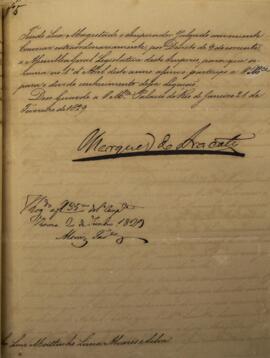 Tendo Sua Magestade o Imperador Julgado conveniente
Convocar extraordinariamente, por Decreto de 9 do corrente
a Assemblea Geral Legislativa deste Imperio, para que se
no 1º d'Abril deste anno assim participo a V. Mce.
para o devido conhecimento dessa Legação.
Deos Guarde a V. Mce. Palacio do Rio de Janeiro 21 de
Fevereiro de 1829
Marquez de Aracaty
Roma 2 de Junho 1829
Luiz Moutinho Lima Alvares e Silva